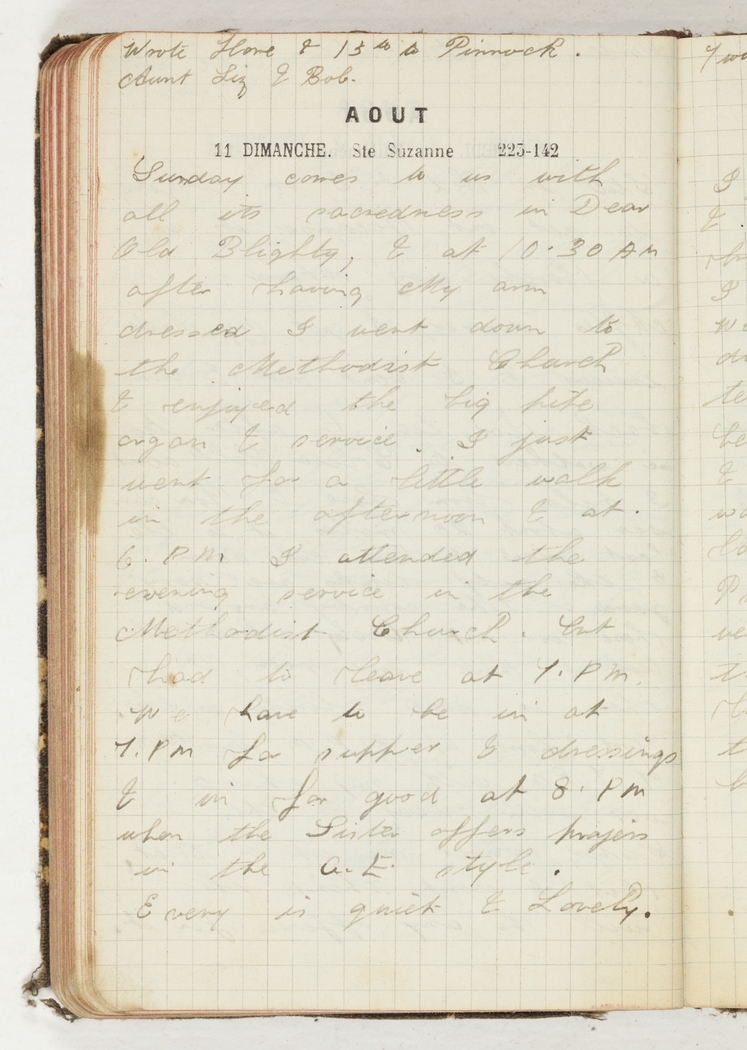 Wrote Home & 13th to Pinnock.
Aunt Liz & Bob.
AOUT
11 DIMANCHE. Ste Suzanne 223-142
Sunday comes to us with
all its sacredness in Dear
Old Blighty, & at 10.30 AM
after having My arm
dressed I went down to
the Methodist Church
& enjoyed the big pipe
organ & service. I just
went for a little walk
in the afternoon & at.
6. PM I attended the
evening service in the
Methodist Church. but
had to leave at 7. P M.
We have to be in at
7. PM for supper & dressings
& in for good at 8. PM
when the Sister offers prayers
in the C. E. style.
Every is quiet & Lovely.